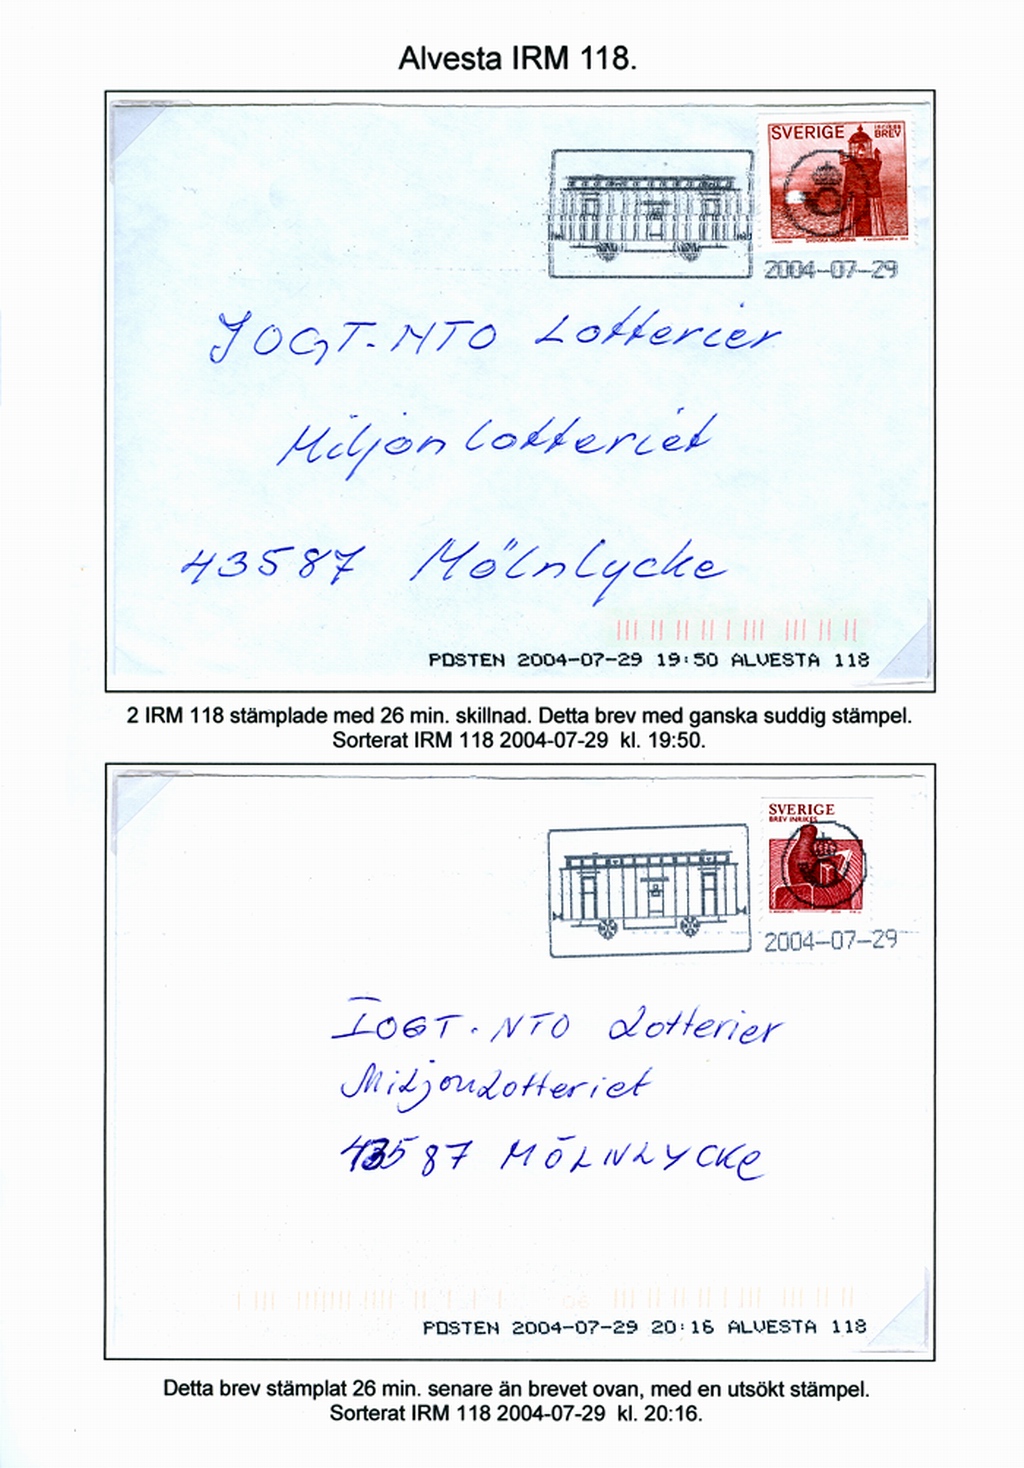 Alvesta IRM 118.
SVERIGE
BREV
2004-07-29
IOGT-NTO Lotterier
Miljonlotteriet
43587 Mölnlycke
POSTEN 2004-07-29 19:50 ALVESTA 118
2 IRM 118 stämplade med 26 min. skillnad. Detta brev med ganska suddig stämpel.
Sorterat IRM 118 2004-07-29 kl. 19:50.
SVERIGE
BREV INRIKES
2004-07-29
IOGT-NTO Lotterier
MiljonLotteriet
43587 MÖLNLYCKe
POSTEN 2004-07-29 20:16 ALVESTA 118
Detta brev stämplat 26 min. senare än brevet ovan, med en utsökt stämpel.
Sorterat IRM 118 2004-07-29 kl. 20:16.